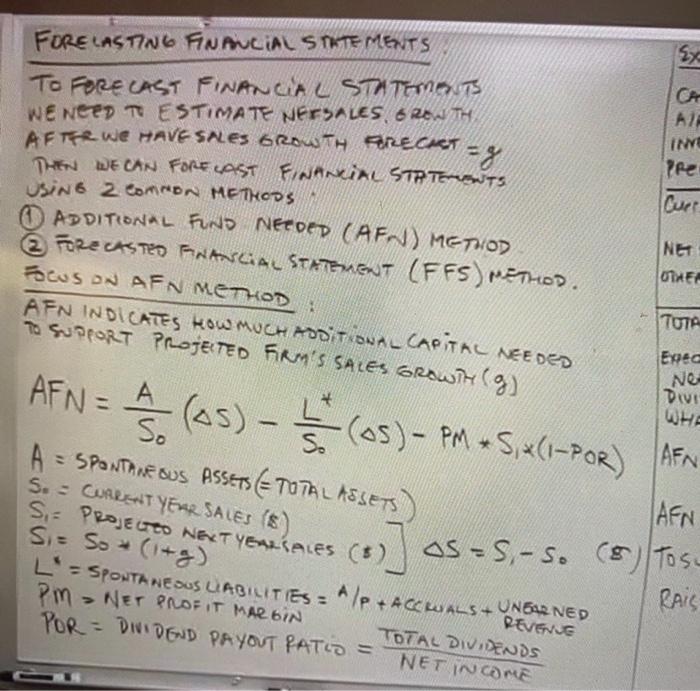 FORECASTING FINANCIAL STATEMENTS
TO FORECAST FINANCIAL STATEMENTS
WE NEED TO ESTIMATE SALES GROWTH.
AFTER WE HAVE SALES GROWTH FORECAST = g
THEN WE CAN FORECAST FINANCIAL STATEMENTS
USING 2 COMMON METHODS:
① ADDITIONAL FUND NEEDED (AFN) METHOD
② FORECASTED FINANCIAL STATEMENT (FFS) METHOD.
FOCUS ON AFN METHOD:
AFN INDICATES HOW MUCH ADDITIONAL CAPITAL NEEDED
TO SUPPORT PROJECTED FIRM'S SALES GROWTH (g)
AFN = A/S₀ (ΔS) - L*/S₀ (ΔS) - PM * S₁ * (1-POR)
A = SPONTANEOUS ASSETS (= TOTAL ASSETS)
S₀ = CURRENT YEAR SALES ($)
S₁ = PROJECTED NEXT YEAR SALES ($) ] ΔS = S₁ - S₀ ($)
S₁ = S₀ * (1+g)
L* = SPONTANEOUS LIABILITIES = A/P + ACCRUALS + UNEARNED REVENUE
PM = NET PROFIT MARGIN
POR = DIVIDEND PAYOUT RATIO = TOTAL DIVIDENDS / NET INCOME
EX
CA
A/
INV
PRE
Curr
NET
OTHER
TOTA
EXPEC
NE
DIVI
WHA
AFN
AFN
TO SU
RAIS